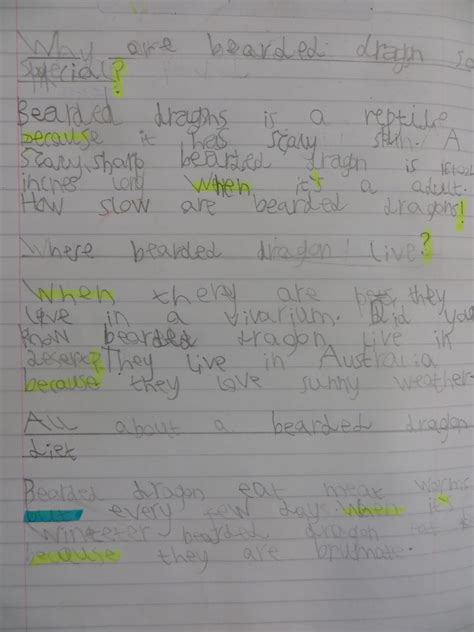 Why are bearded dragon so
special?
Bearded dragons is a reptile
because it has scary skin. A
scary, sharp bearded dragon is
incres long when it's a adult.
How slow are bearded dragons!
Where bearded dragon live?
When there are pets, they
live in a vivarium. Did you
know bearded dragon live in
desert? They live in Australia
because they love sunny weather.
All about a bearded dragon
diet
Bearded dragon eat meat worms
but every few days. When it's
winteter bearded dragon eat
because they are brumate.